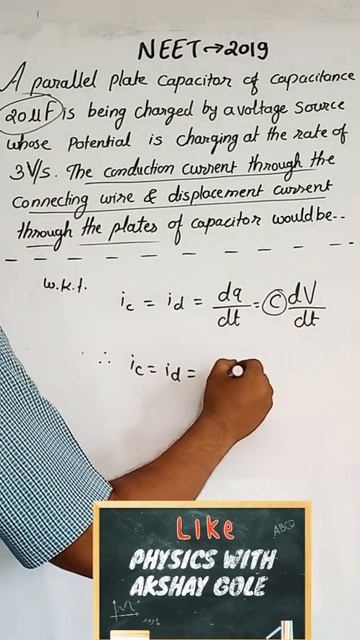 NEET→2019
A parallel plate capacitor of capacitance
20μF is being charged by a voltage source
whose potential is changing at the rate of
3V/s. The conduction current through the
connecting wire & displacement current
through the plates of capacitor would be--
w.k.t. ic = id = dq/dt = C dV/dt
∴ ic = id =
Like
ABCD
PHYSICS WITH
AKSHAY GOLE